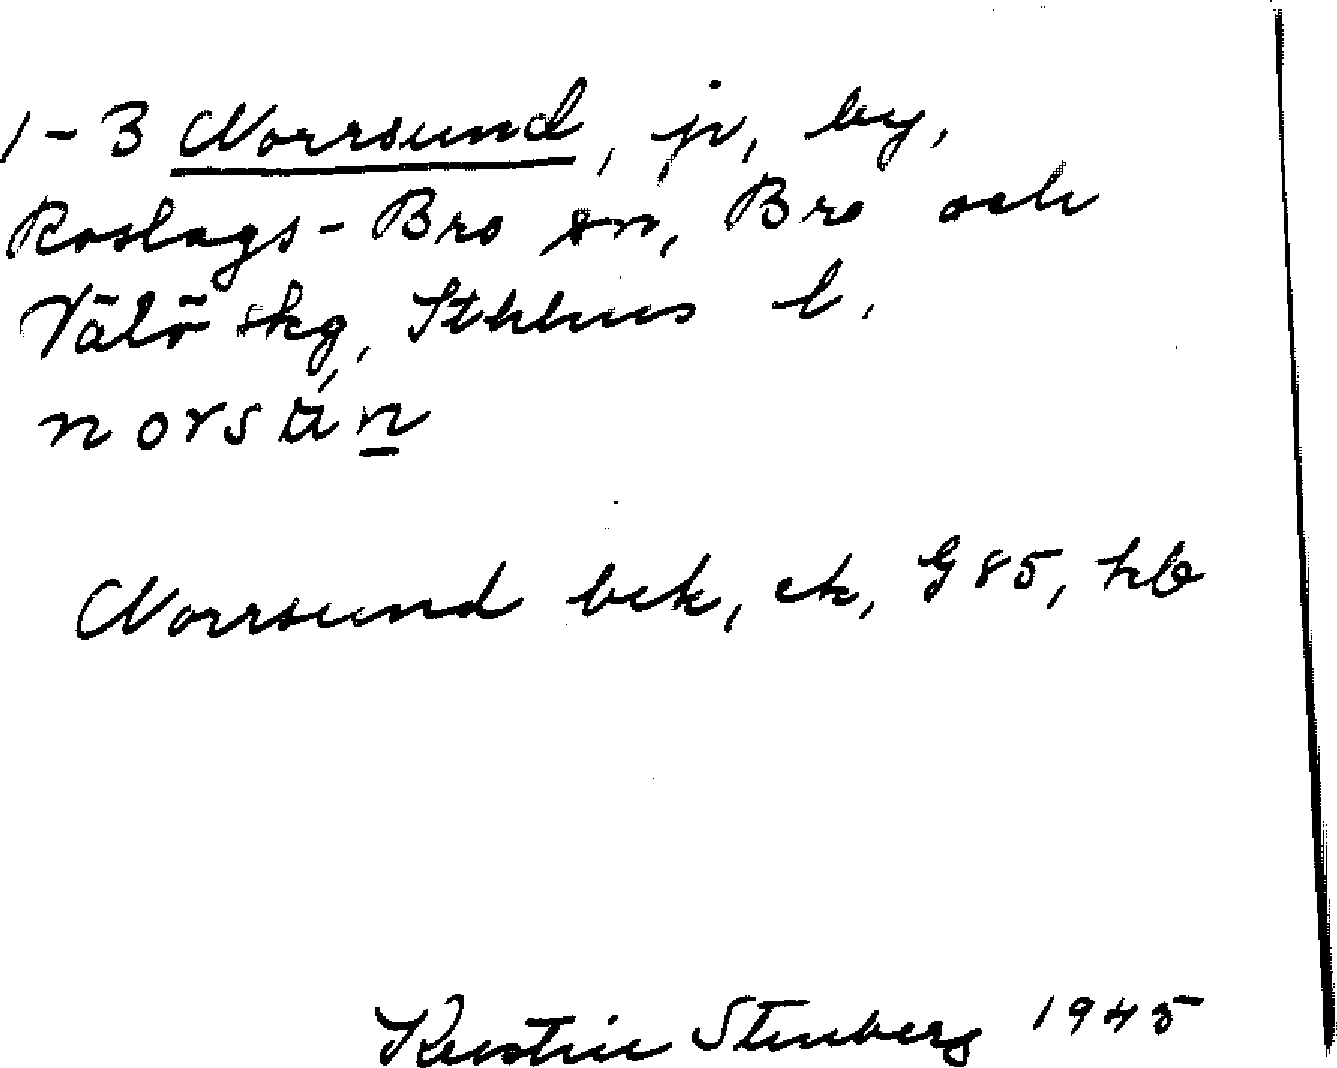 1-3 Norrsund, jr, by,
Roslags-Bro sn, Bro och
Vätö skg, Sthlms l.
norsún
Norrsund bek, ek, G 85, hb
Kerstin Stenberg 1945